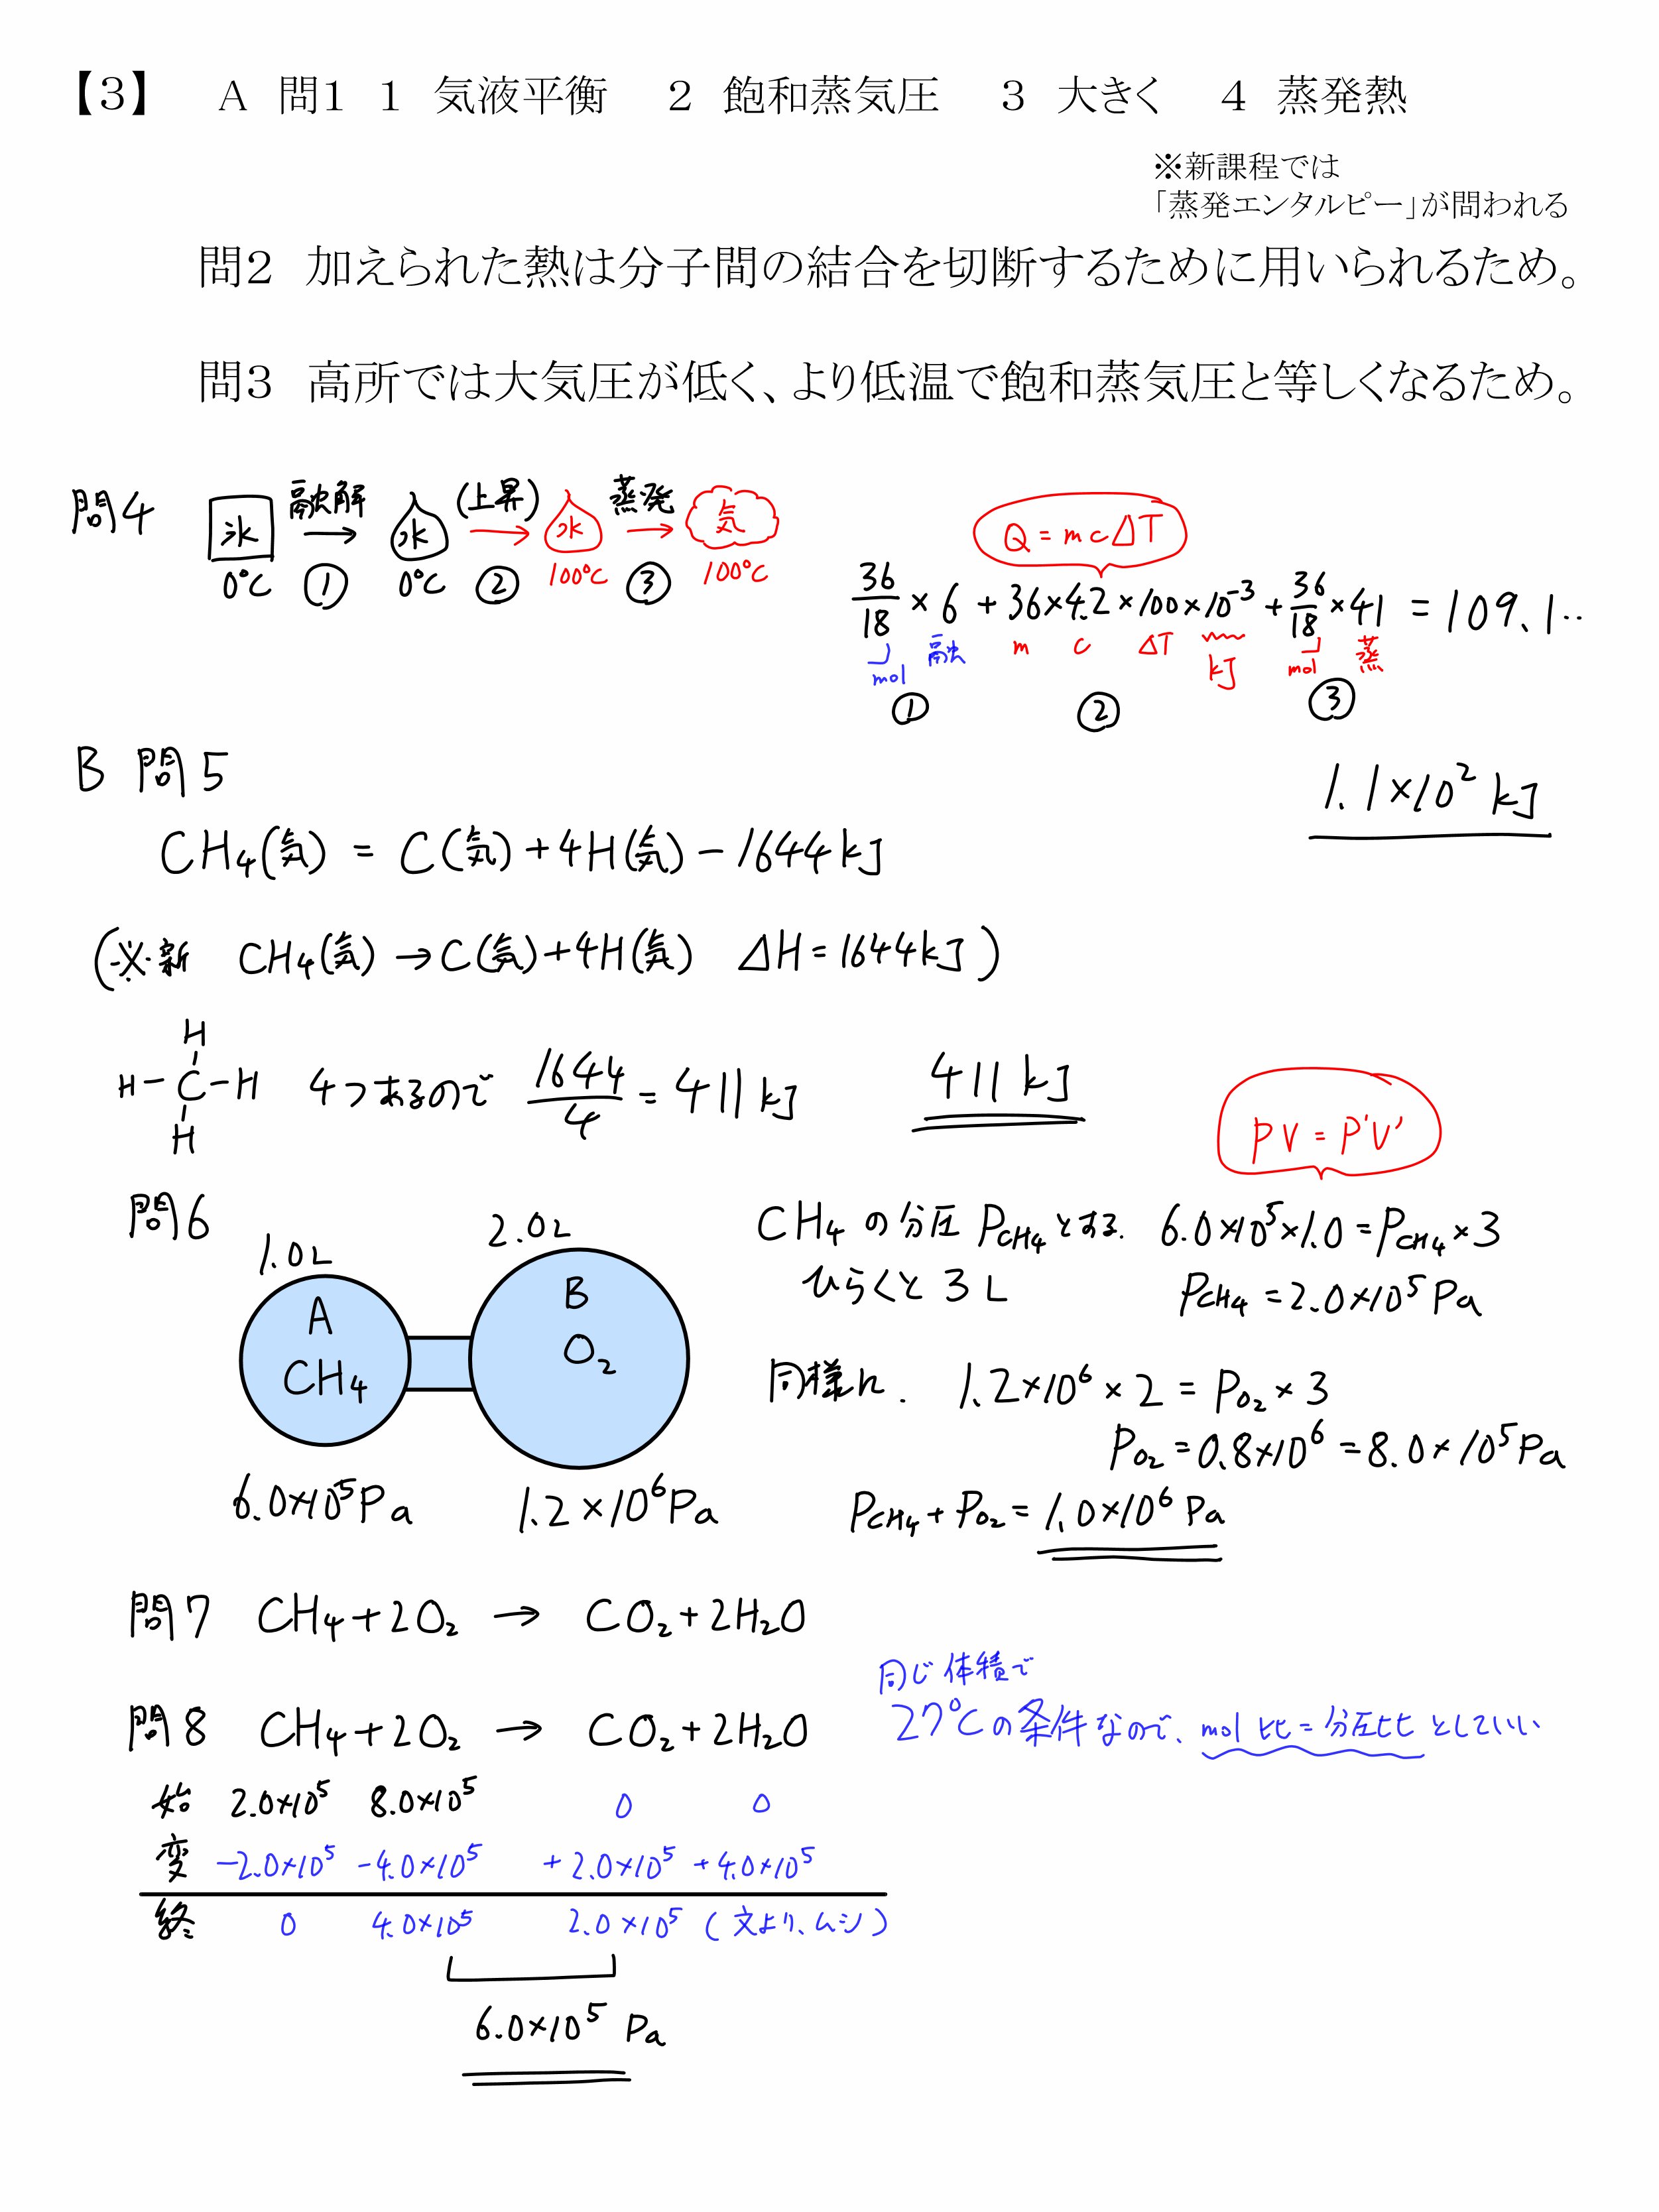 【3】 A 問1 1 気液平衡 2 飽和蒸気圧 3 大きく 4 蒸発熱
※新課程では
「蒸発エンタルピー」が問われる
問2 加えられた熱は分子間の結合を切断するために用いられるため。
問3 高所では大気圧が低く、より低温で飽和蒸気圧と等しくなるため。
問4 氷 融解 → 水 (上昇) → 水 蒸発 → 気
0℃ ① 0℃ ② 100℃ ③ 100℃
Q = mcΔT
36/18 × 6 + 36×4.2×100×10⁻³ + 36/18 × 41 = 109.1‥
mol 融 m c ΔT kJ mol 蒸
① ② ③
1.1×10² kJ
B 問5
CH₄(気) = C(気)+4H(気)−1644kJ
(※新 CH₄(気) → C(気)+4H(気) ΔH=1644kJ)
H
H−C−H 4つあるので 1644/4 = 411kJ 411 kJ
H
PV = P'V'
問6
1.0L 2.0L
A B
CH₄ O₂
6.0×10⁵Pa 1.2×10⁶Pa
CH₄の分圧 P_CH₄とする. 6.0×10⁵×1.0=P_CH₄×3
ひらくと 3L P_CH₄=2.0×10⁵Pa
同様に. 1.2×10⁶×2 = P_O₂×3
P_O₂=0.8×10⁶=8.0×10⁵Pa
P_CH₄+P_O₂=1.0×10⁶Pa
問7 CH₄+2O₂ → CO₂+2H₂O
同じ体積で
27℃の条件なので、mol比=分圧比としていい
問8 CH₄+2O₂ → CO₂+2H₂O
始 2.0×10⁵ 8.0×10⁵ 0 0
変 −2.0×10⁵ −4.0×10⁵ +2.0×10⁵ +4.0×10⁵
終 0 4.0×10⁵ 2.0×10⁵ (文より、ムシ)
6.0×10⁵ Pa